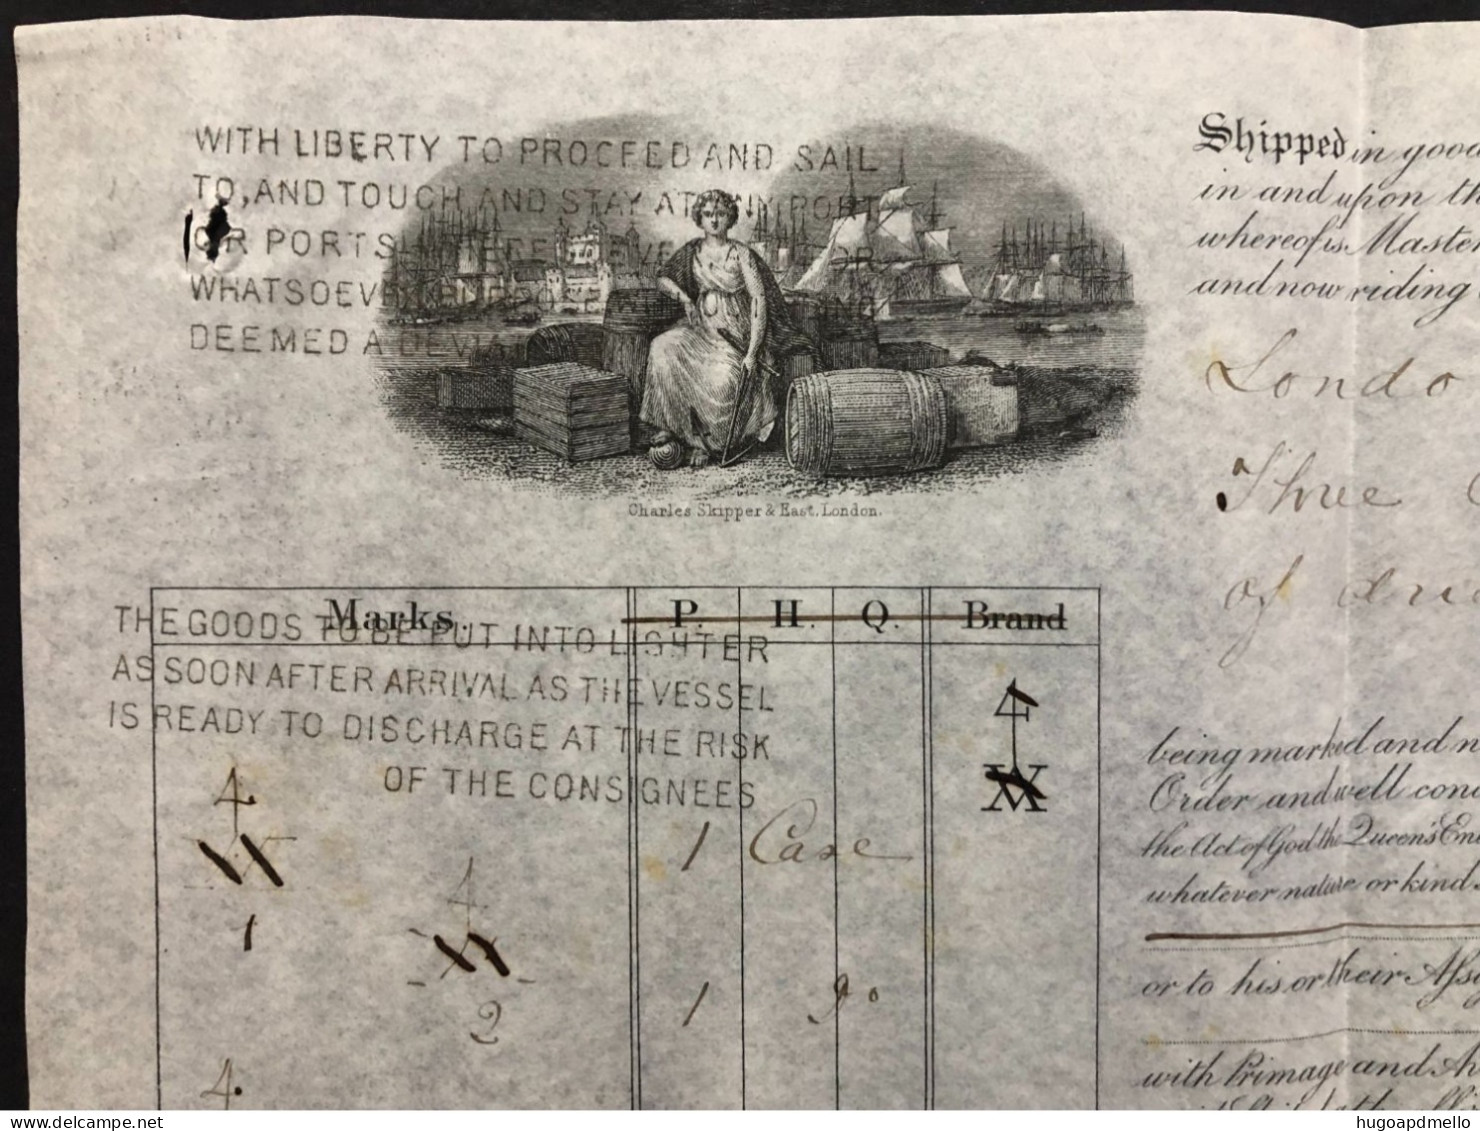 WITH LIBERTY TO PROCEED AND SAIL
TO, AND TOUCH AND STAY AT ANY PORT
OR PORTS
WHATSOEVER PURPOSE
DEEMED A DEVIAT
Charles Skipper & East, London.
Marks. P. H. Q. Brand
THE GOODS TO BE PUT INTO LIGHTER
AS SOON AFTER ARRIVAL AS THE VESSEL
IS READY TO DISCHARGE AT THE RISK
OF THE CONSIGNEES
4
4
1 Case
1
4
1 do
2
4
Shipped in good
in and upon th
whereof is Master
and now riding
Londo
Three
of
being marked and n
Order and well con
the Act of God the Queen's En
whatever nature or kind
or to his or their Assi
with Primage and
delcampe.net
hugoapdmello